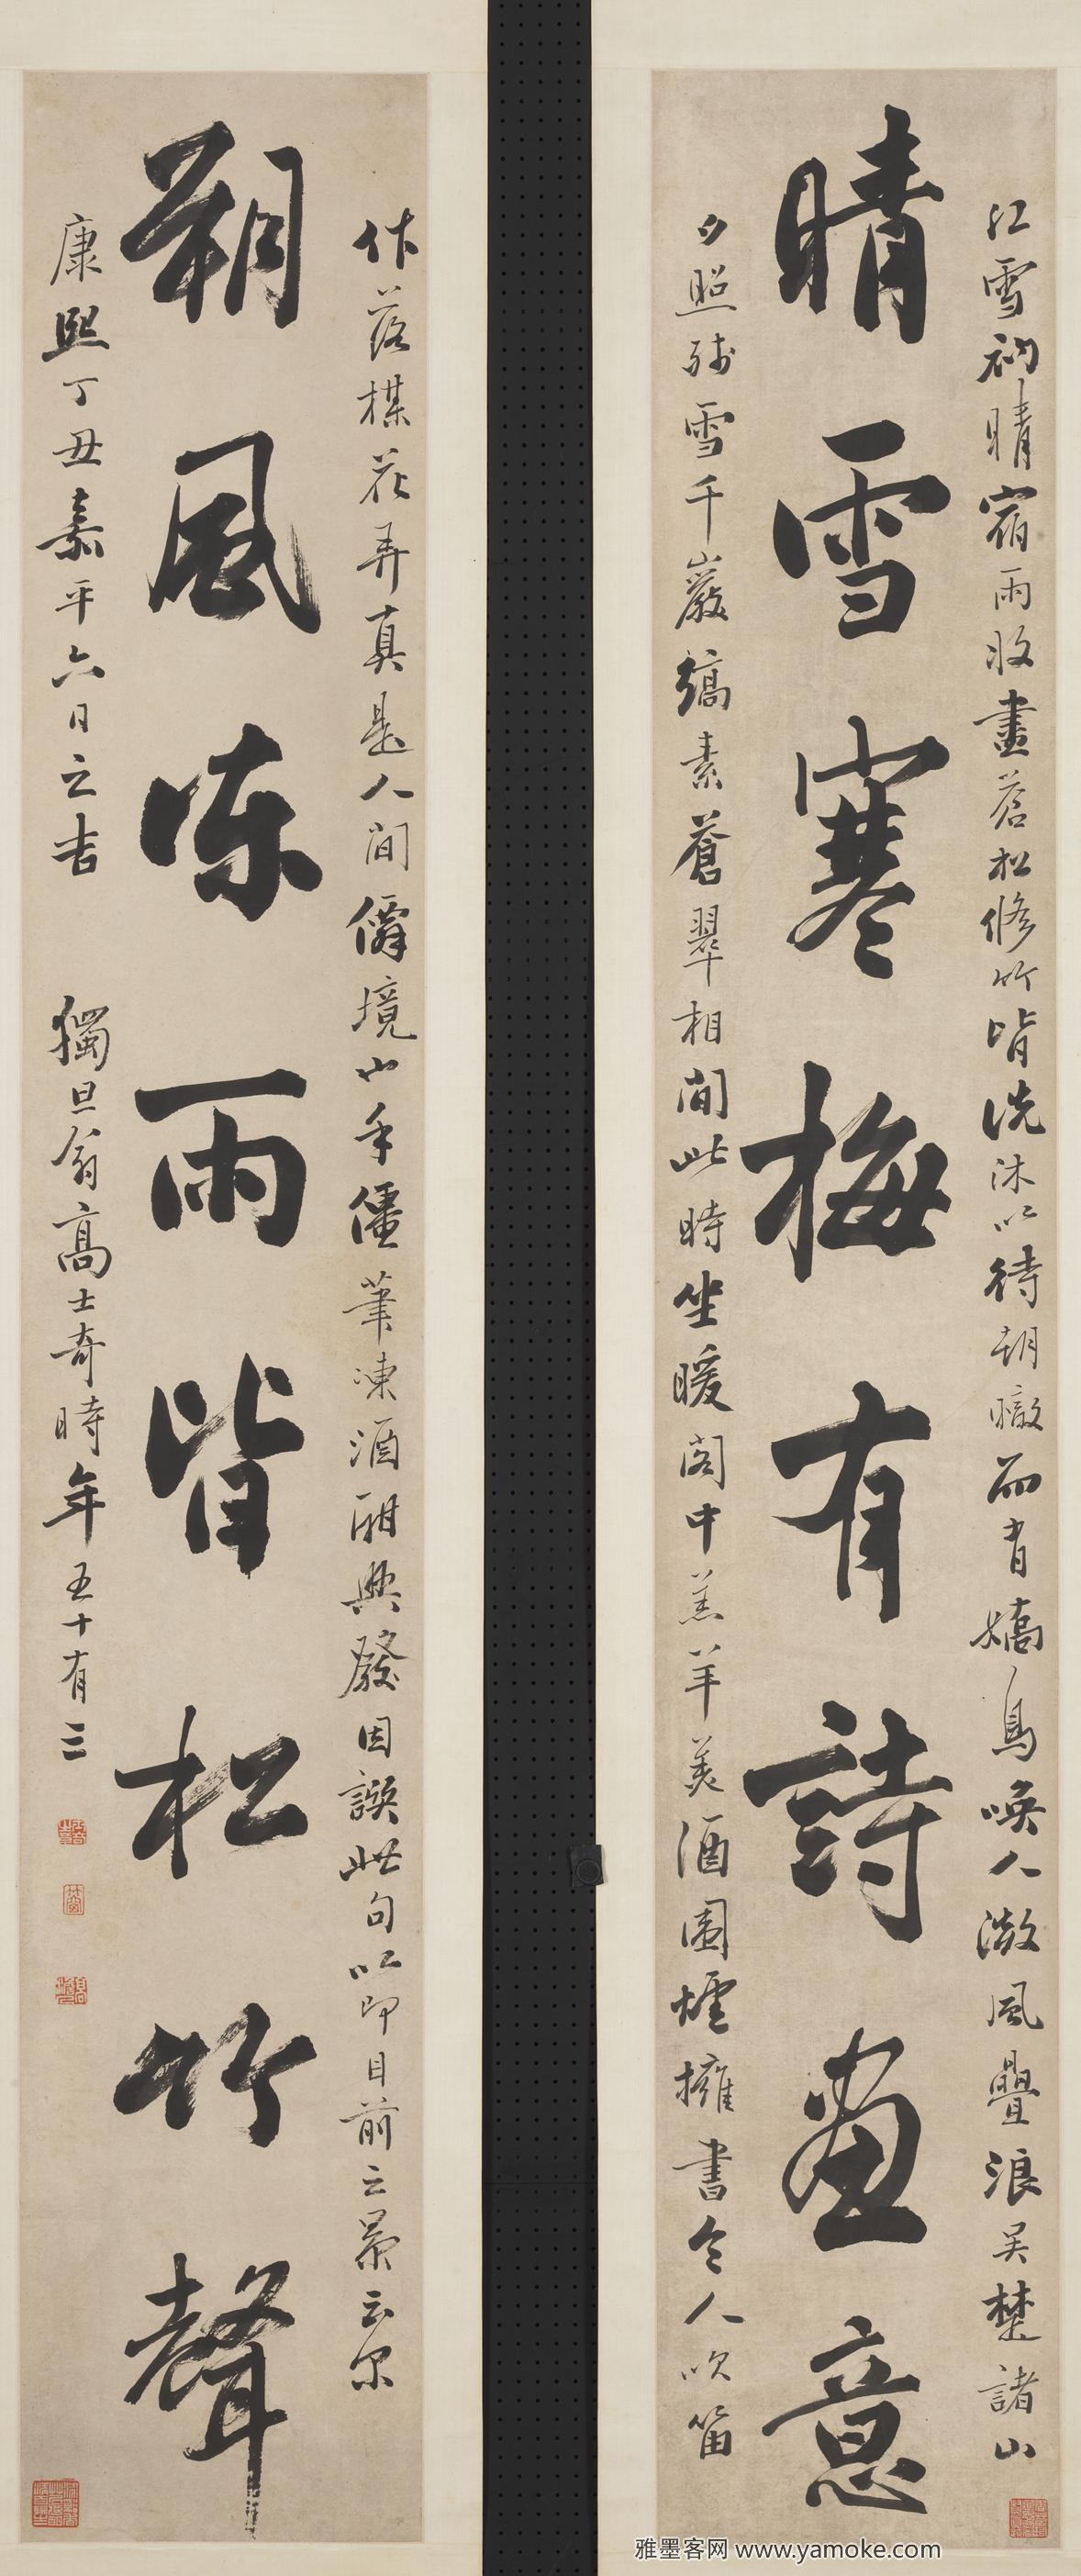 江雪初晴宿雨收盡蒼松修竹皆洗沐以待朝暾而有嬌鳥喚人微風疊浪吴楚諸山
晴雪寒梅有詩畫意
夕照殘雪千巖縞素蒼翠相間此時坐暖閣中羔羊美酒圍爐擁書令人吹笛
作落梅花弄真是人間僻境也手僵筆凍酒酣興發因譔此句以即目前之景云尔
朔風凍雨皆松竹聲
康熙丁丑嘉平六日之吉 獨旦翁高士奇時年五十有三
雅墨客网 www.yamoke.com